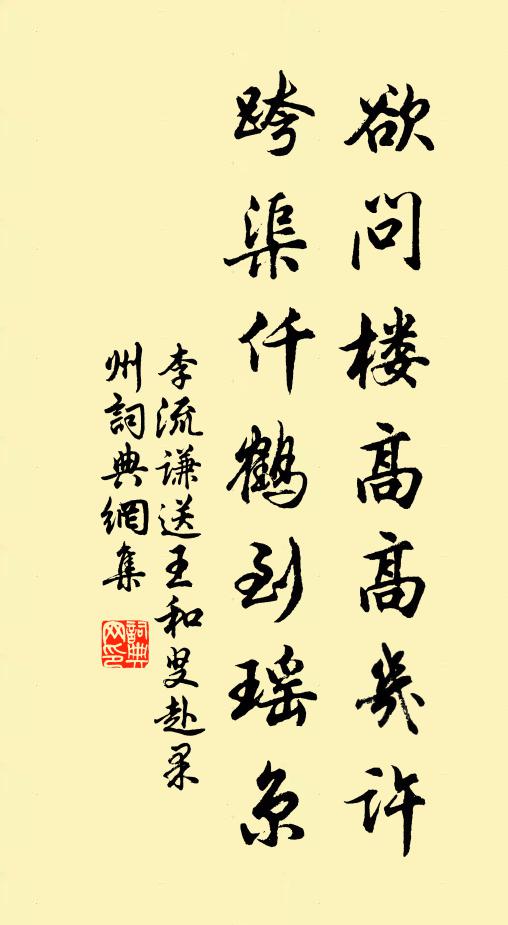 欲问楼高高几许
跨渠仟鹤到瑶京
李流谦送王和叟赴果
州詞典網集
詞典网印